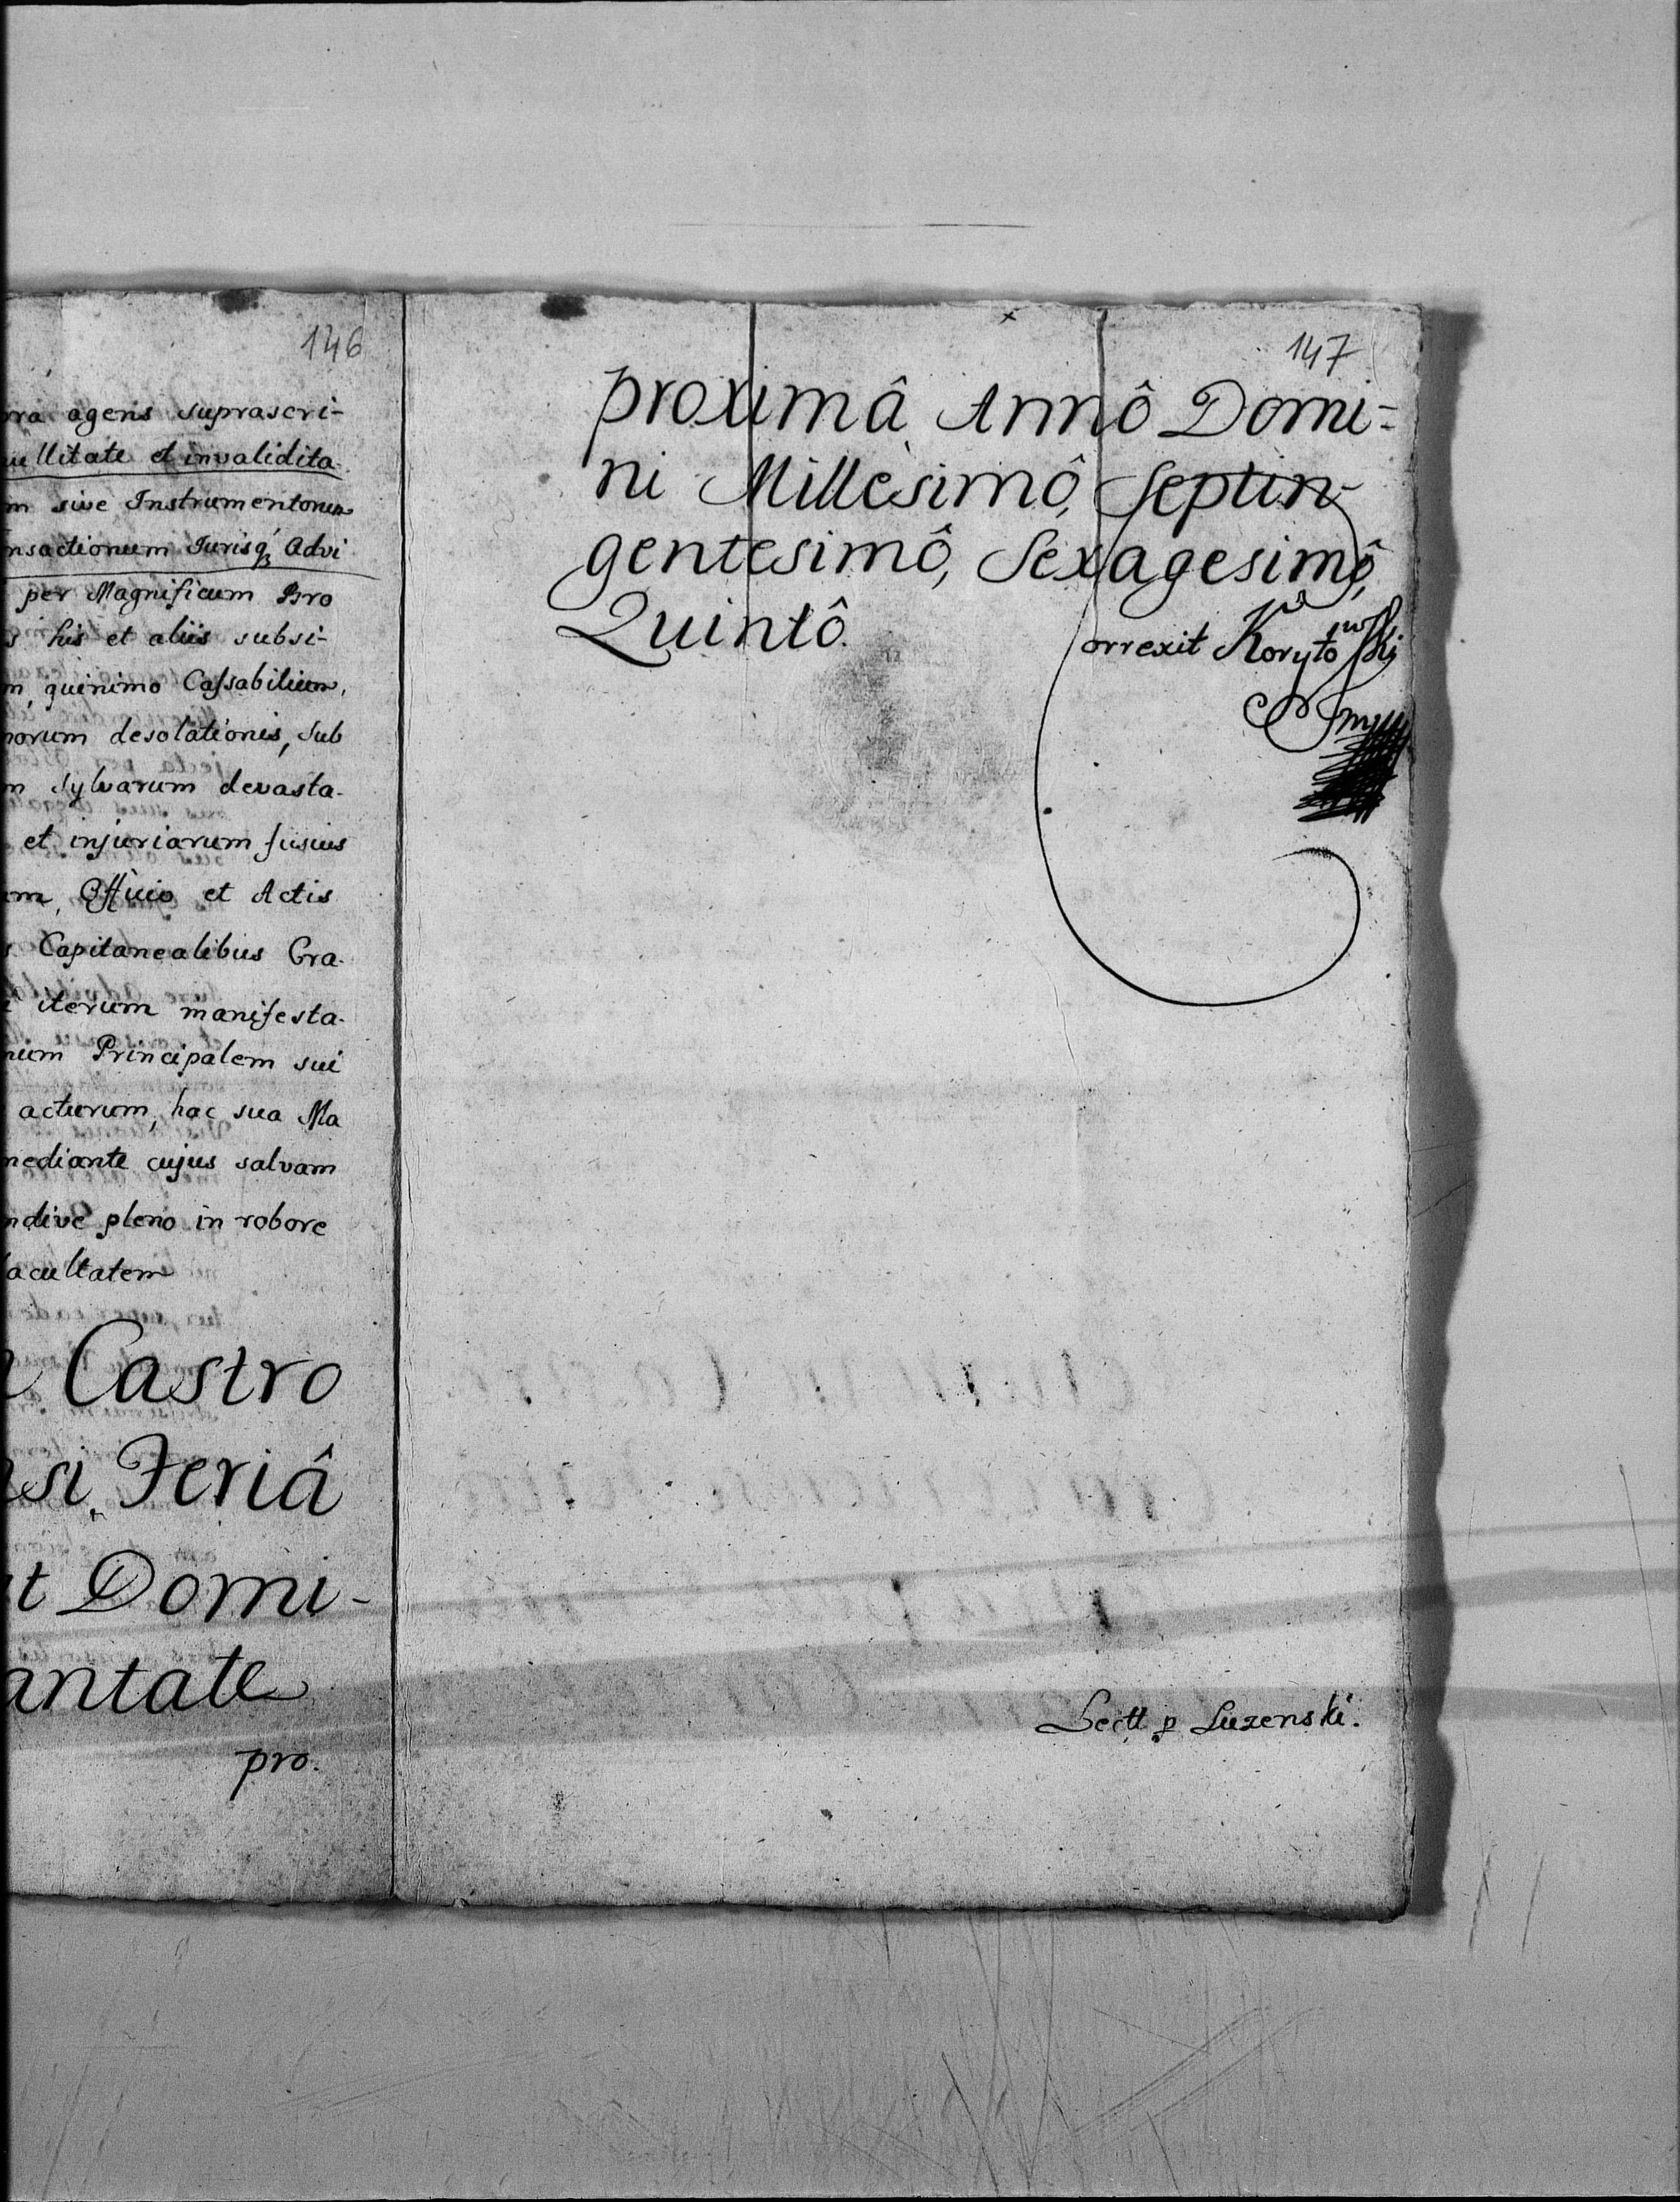 146
ra agens suprascri-
ullitate et invalidita-
m sive Instrumentorum
nsactionum Jurisq3 Advi
per Magnificum Bro
s his et aliis subsi-
m, quinimo Cassabilium,
norum desolationis, sub
m Sylvarum devasta-
et injuriarum fusius
em, Officio et Actis
s Capitanealibus Cra-
iterum manifesta-
num Principalem sui
acturum, hac sua Ma
mediante cujus salvam
ndive pleno in robore
acultatem
Castro
si, Feriâ
t Domi-
antate
pro.
147
proximâ Annô Domi-
ni Millesimô, Septin-
gentesimô, Sexagesimô,
Quintô.
Correxit Korytowski
Lectt p Luzenski.